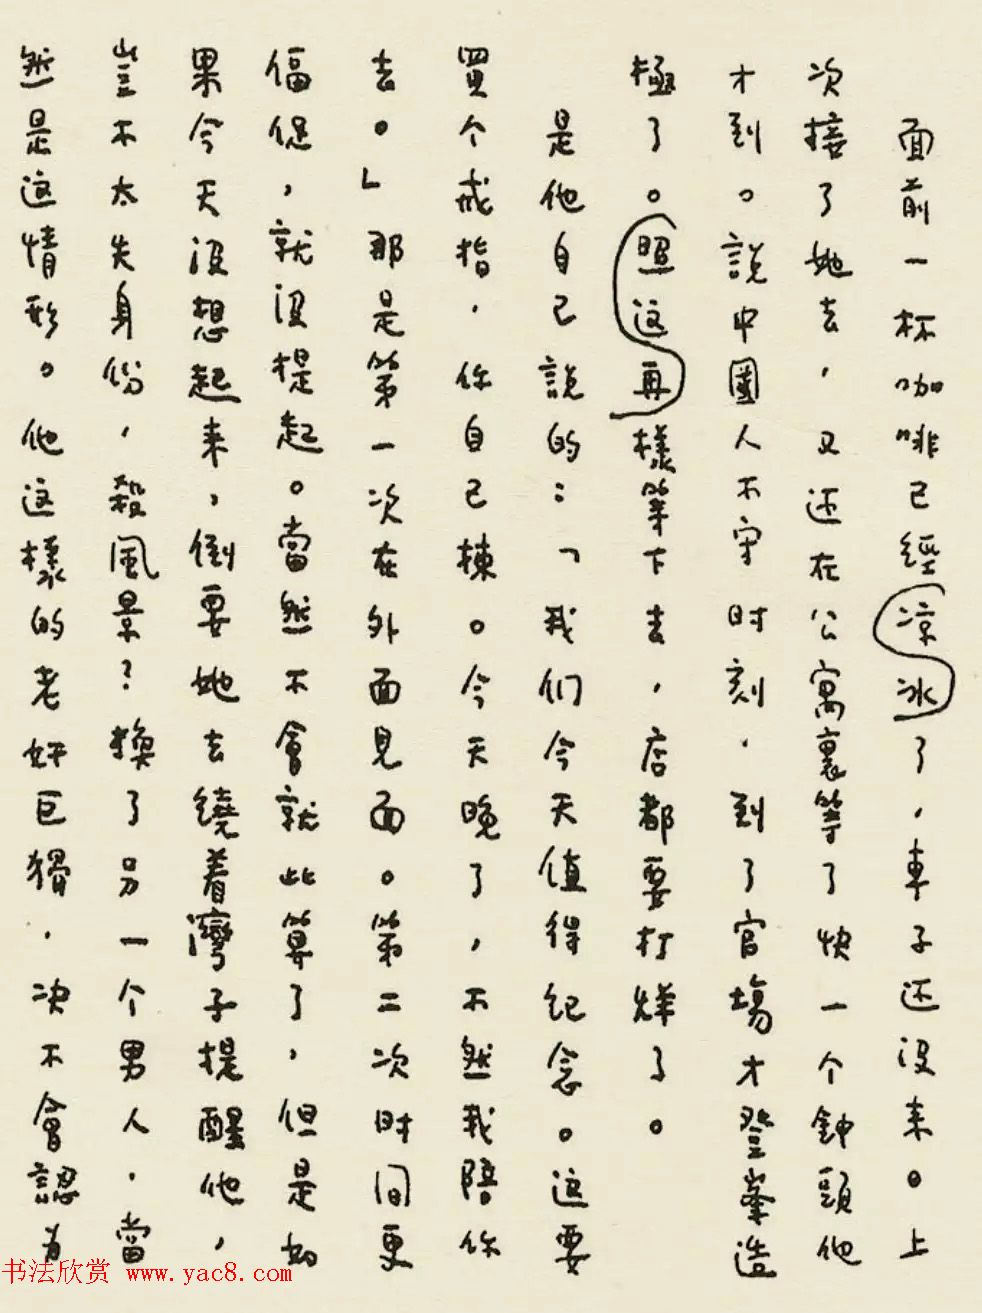 面前一杯咖啡已經凉冰了，車子还没来。上
次接了她去，又还在公寓裏等了快一个鐘頭他
才到。說中國人不守时刻，到了官場才登峯造
極了。照这再樣等下去，店都要打烊了。
是他自己說的：「我们今天值得纪念。这要
買个戒指，你自己揀。今天晚了，不然我陪你
去。」那是第一次在外面見面。第二次时间更
偪促，就没提起。當然不會就此算了，但是如
果今天没想起来，倒要她去繞着灣子提醒他，
豈不太失身份，殺風景？換了另一个男人，當
然是这情形。他这樣的老奸巨猾，决不會認为
书法欣赏 www.yac8.com